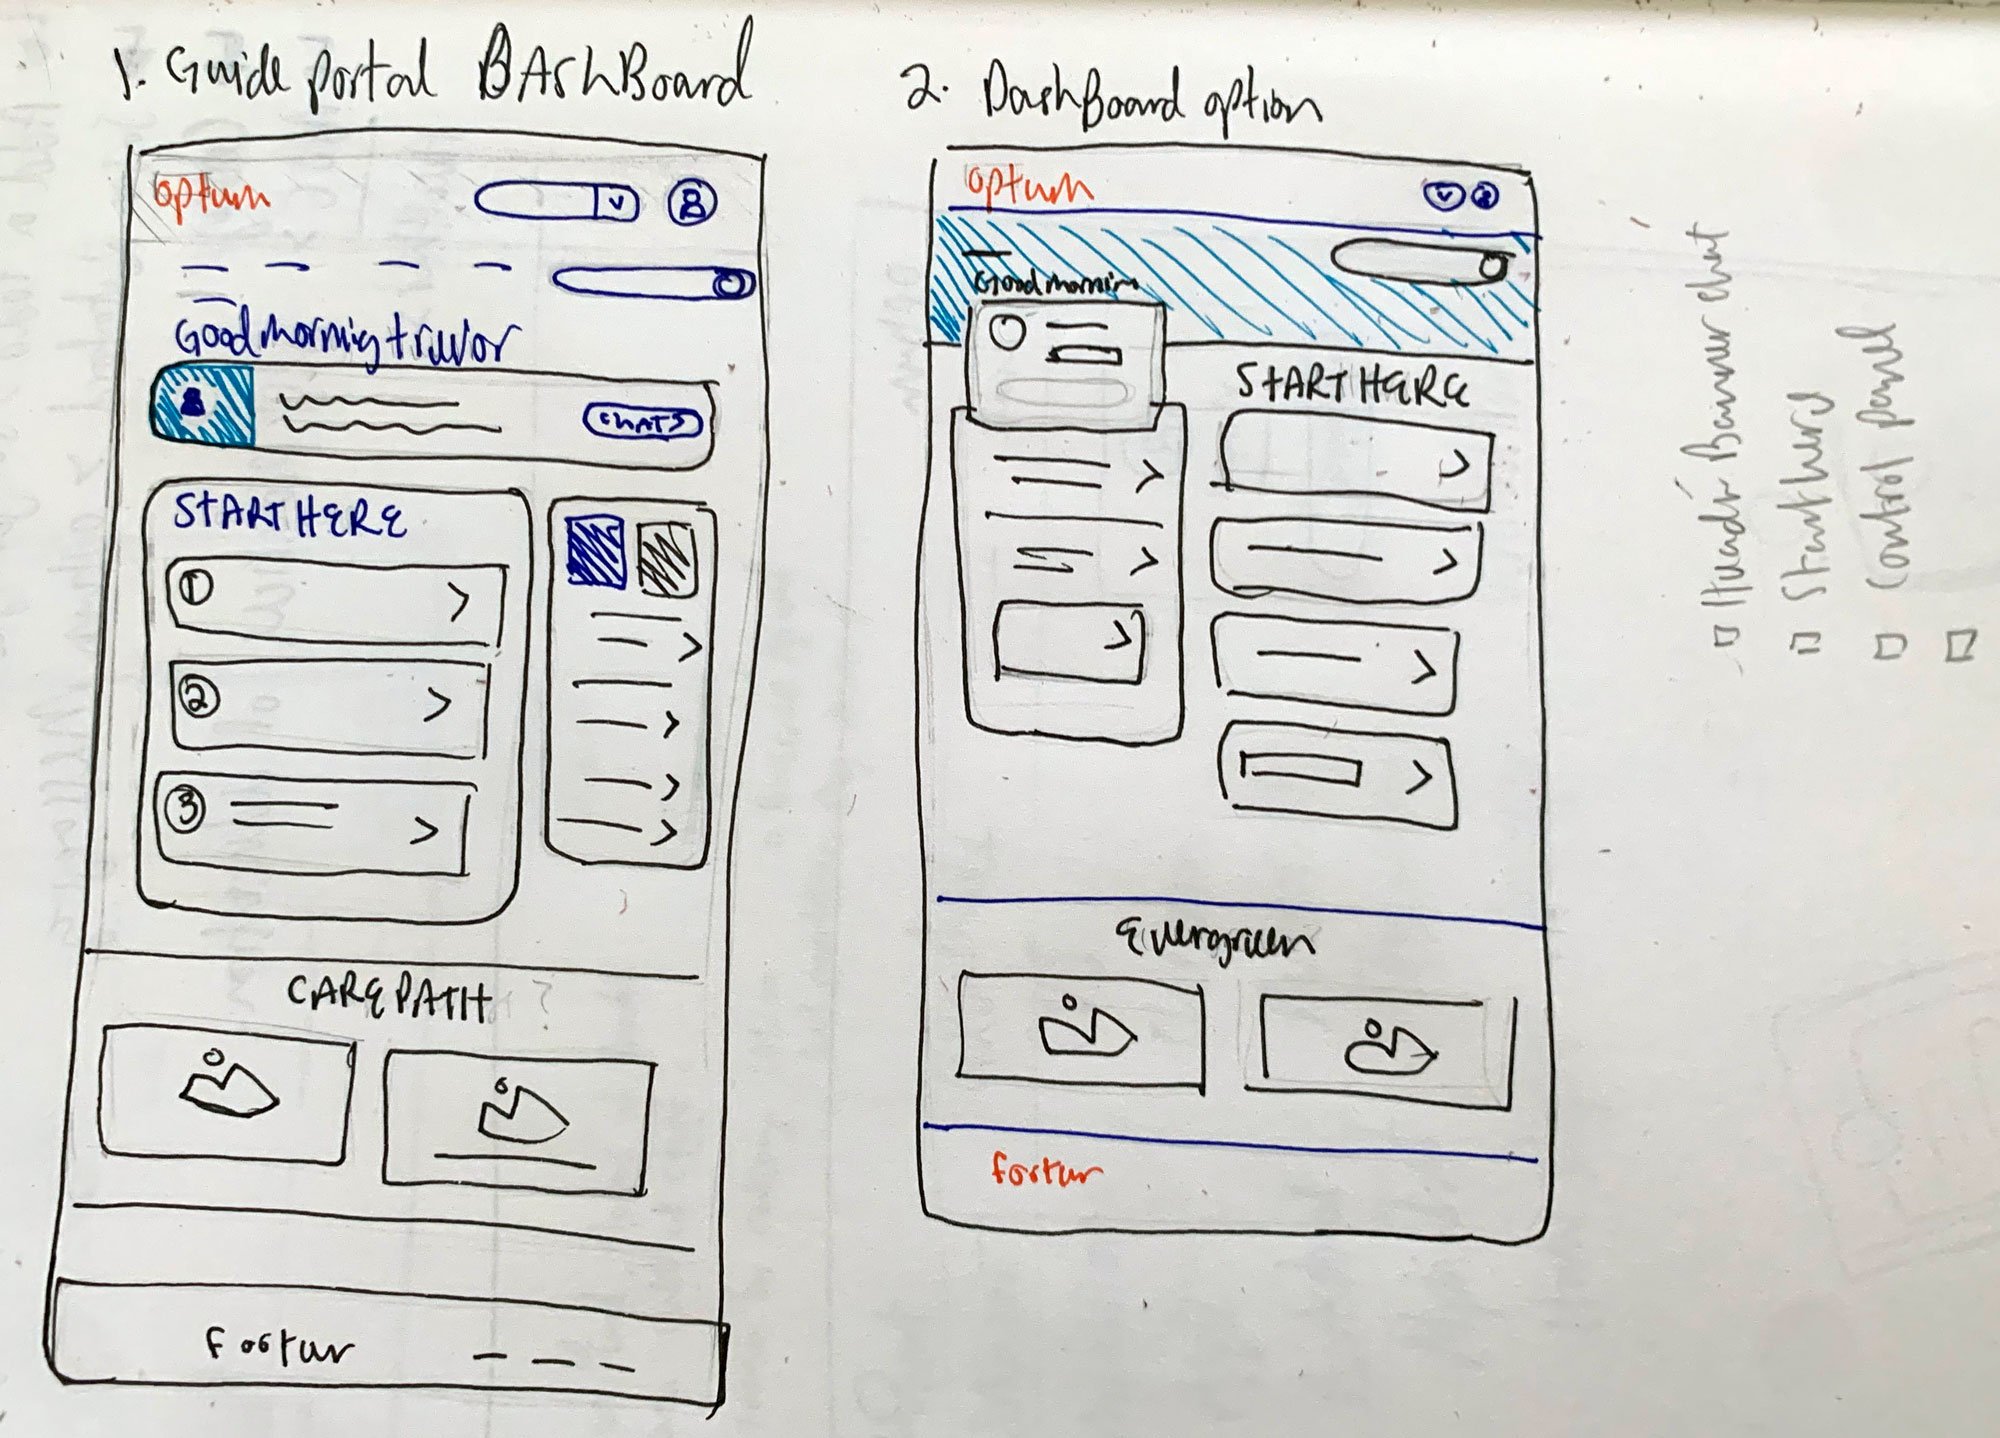 1. Guide portal DAshBoard
optum
Good morning trevor
CHATS
STARTHERE
1
2
3
CARE PATH
Footer
2. DashBoard option
optum
Good mornin
STARTHERE
Evergreen
footer
Header Banner chat
Starthere
Control panel